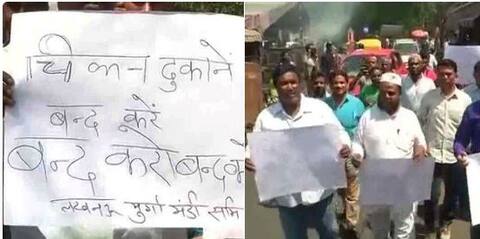 चीकन दुकानें
बन्द करें
बन्द करो बन्द करो
लखनऊ मुर्गा मंडी समि